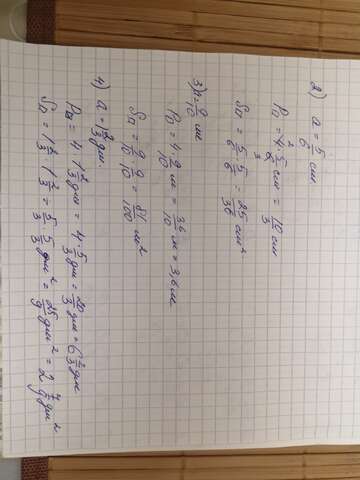 2) a = 5/6 см
P□ = 4 · 5/6 см = 10/3 см
2
3
S□ = 5/6 · 5/6 = 25/36 см²
3) a = 9/10 м
P□ = 4 · 9/10 м = 36/10 м = 3,6 м
S□ = 9/10 · 9/10 = 81/100 м²
4) a = 1 2/3 дм.
P□ = 4 · 1 2/3 дм = 4 · 5/3 дм = 20/3 дм = 6 2/3 дм
S□ = 1 2/3 · 1 2/3 = 5/3 · 5/3 дм² = 25/9 дм² = 2 7/9 дм²